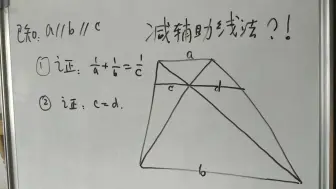 已知: a // b // c
减辅助线法?!
① 证: 1/a + 1/b = 1/c
② 证: c = d.
a
c d
b